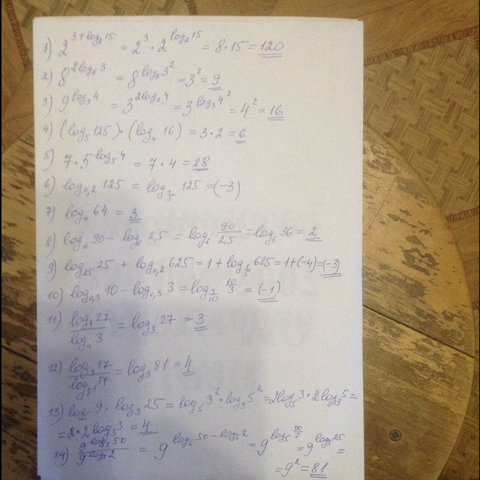 1) 2^{3+log_2 15} = 2^3 · 2^{log_2 15} = 8·15 = 120
2) 8^{2log_8 3} = 8^{log_8 3^2} = 3^2 = 9
3) 9^{log_3 4} = 3^{2log_3 4} = 3^{log_3 4^2} = 4^2 = 16
4) (log_5 125)·(log_4 16) = 3·2 = 6
5) 7·5^{log_5 4} = 7·4 = 28
6) log_{0,2} 125 = log_{1/5} 125 = (-3)
7) log_4 64 = 3
8) log_6 90 - log_6 2,5 = log_6 90/2,5 = log_6 36 = 2
9) log_{25} 25 + log_{0,2} 625 = 1 + log_{1/5} 625 = 1+(-4) = (-3)
10) log_{0,3} 10 - log_{0,3} 3 = log_{3/10} 10/3 = (-1)
11) log_4 27 / log_4 3 = log_3 27 = 3
12) log_3 17 / log_{81} 17 = log_3 81 = 4
13) log_5 9 · log_3 25 = log_5 3^2 · log_3 5^2 = 2log_5 3 · 2log_3 5 =
= 2·2 log_3 3 = 4
14) 9^{log_5 50} / 9^{log_5 2} = 9^{log_5 50 - log_5 2} = 9^{log_5 50/2} = 9^{log_5 25} =
= 9^2 = 81